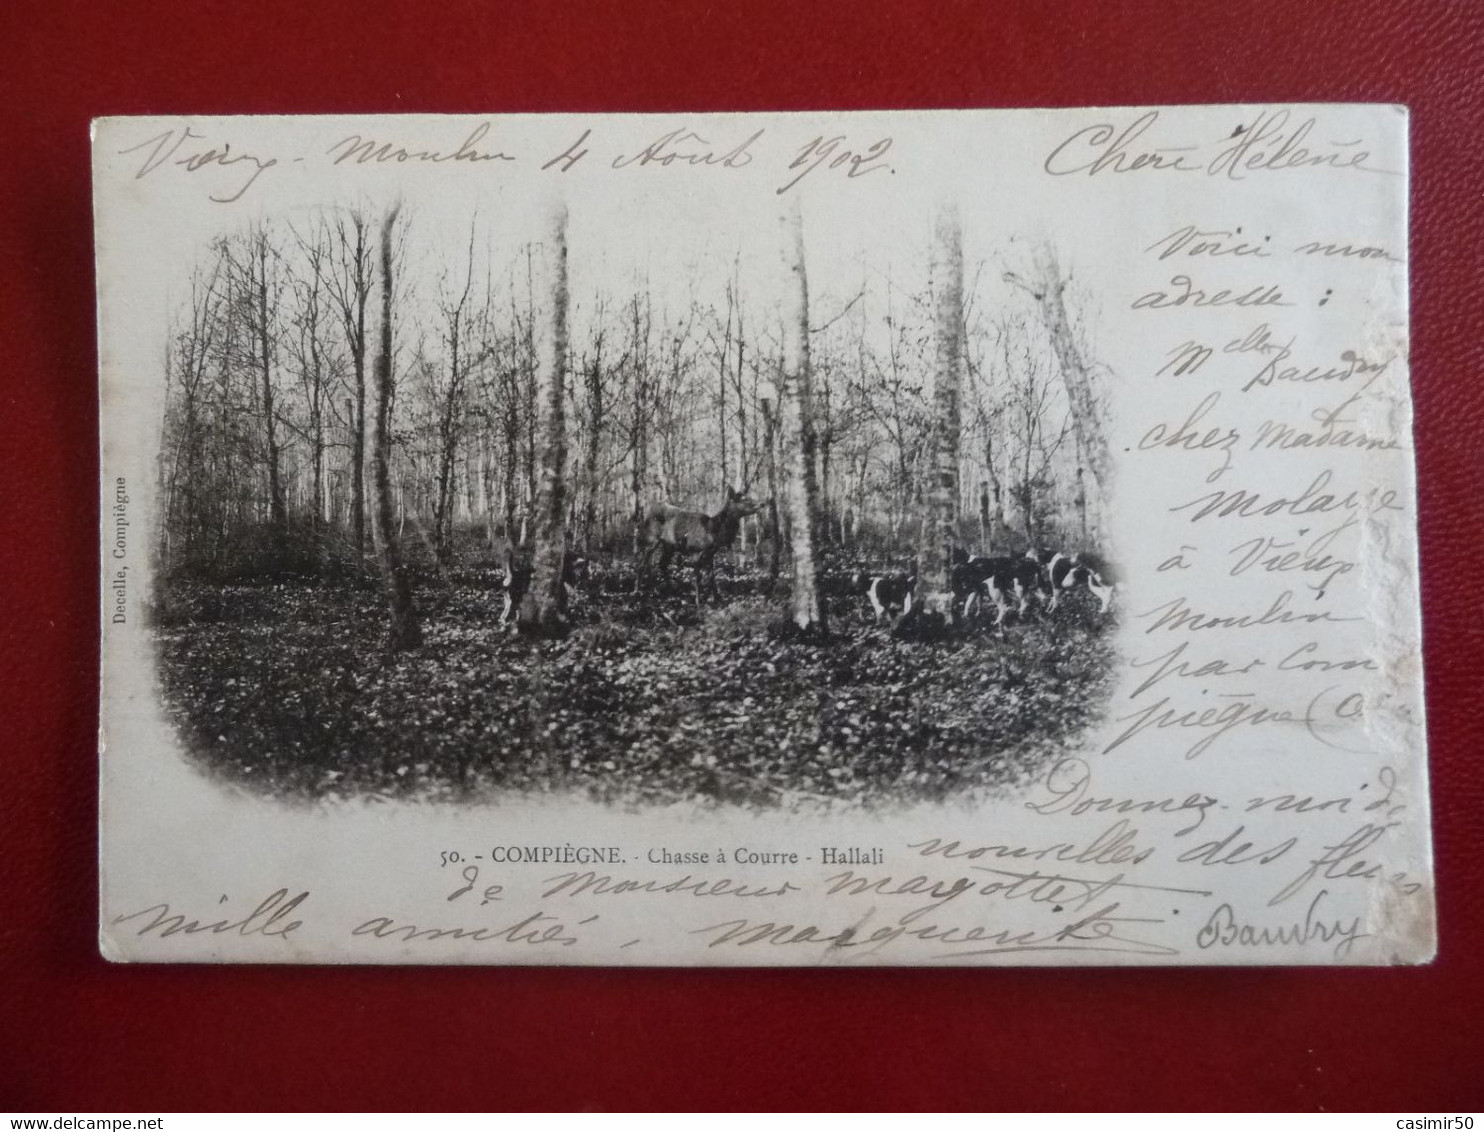 Vieux-Moulin 4 Août 1902.
Chère Hélène
Voici mon
adresse :
Melle Baudry
chez Madame
à Vieux
Moulin
par Com
piègne (Oise
Donnez-moi de
nouvelles des fleurs
de Monsieur Margottet
mille amitiés, Marguerite Baudry
50. - COMPIÈGNE. - Chasse à Courre - Hallali
Decelle, Compiègne
www.delcampe.net
casimir50